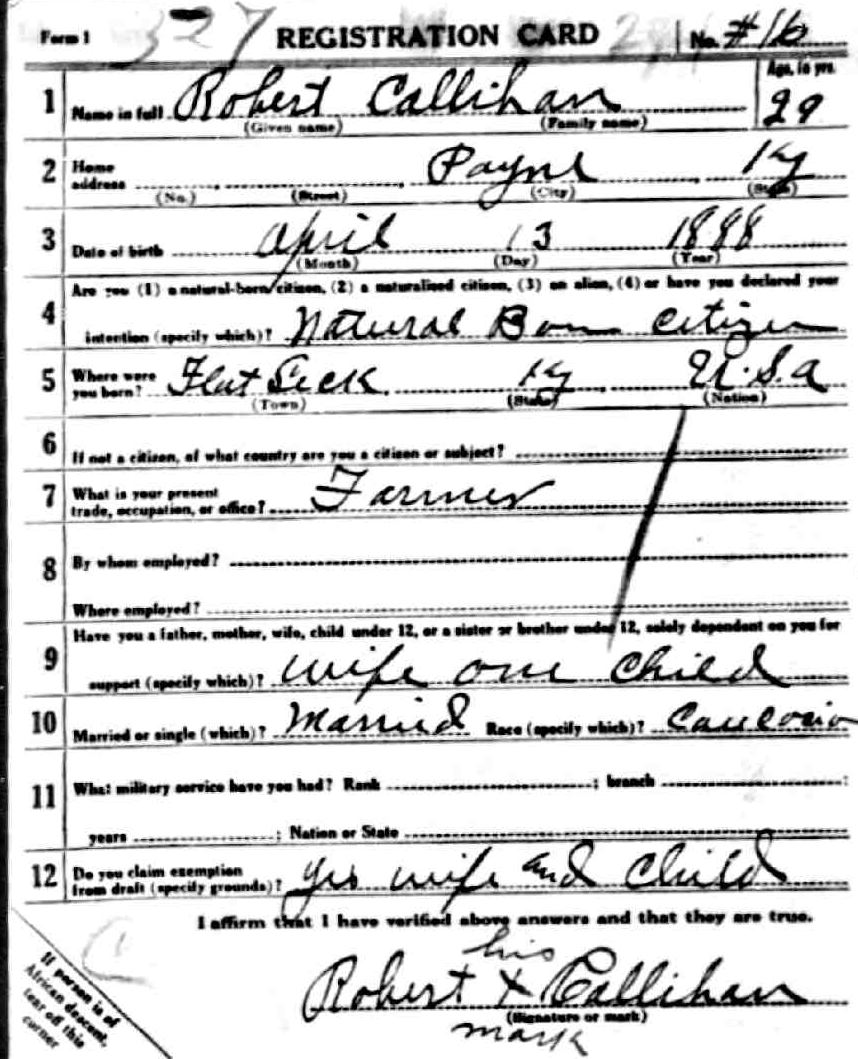 Form 1 327 REGISTRATION CARD No. #16
1 Name in full Robert Callihan Age, in yrs. 29
(Given name) (Family name)
2 Home address Payne Ky
(No.) (Street) (City) (State)
3 Date of birth April 13 1888
(Month) (Day) (Year)
Are you (1) a natural-born citizen, (2) a naturalized citizen, (3) an alien, (4) or have you declared your
4 intention (specify which)? Natural Born citizen
5 Where were you born? Flat Lick Ky U.S.A
(Town) (State) (Nation)
6 If not a citizen, of what country are you a citizen or subject?
7 What is your present
trade, occupation, or office? Farmer
8 By whom employed?
Where employed?
Have you a father, mother, wife, child under 12, or a sister or brother under 12, solely dependent on you for
9 support (specify which)? wife one child
10 Married or single (which)? Married Race (specify which)?
11 What military service have you had? Rank ; branch ;
years ; Nation or State
12 Do you claim exemption
from draft (specify grounds)? Yes wife and child
I affirm that I have verified above answers and that they are true.
his
Robert X Callihan
(Signature or mark)
mark
If person is of
African descent,
tear off this
corner